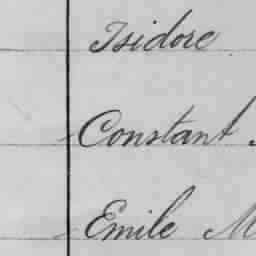 Isidore
Constant
Emile M